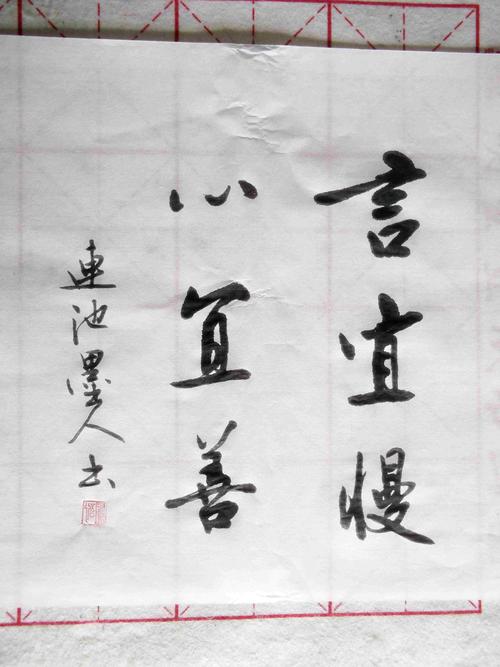 言宜慢
心宜善
連池墨人书